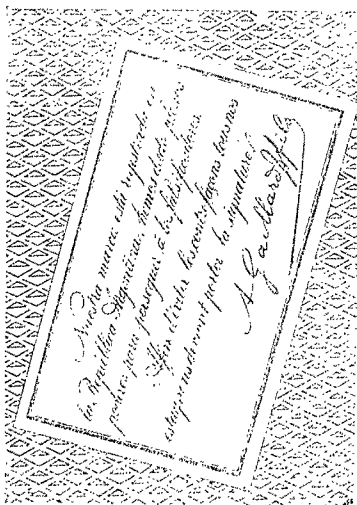 Nuestra marca está registrada en
la República Argentina, hemos dado plenos
poderes para perseguir á los falsificadores.
Afin d'éviter les contrefaçons tous nos
étiquettes devront porter la signature:
A. Gaillard & fils